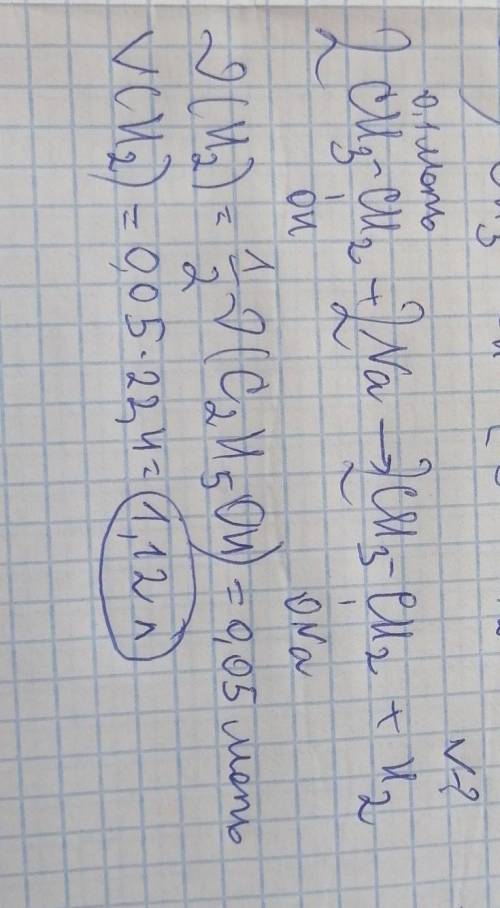 0,1 моль V-?
2CH3-CH2 + 2Na → 2CH3-CH2 + H2
OH ONa
ν(H2) = 1/2 ν(C2H5OH) = 0,05 моль
V(H2) = 0,05·22,4 = 1,12 л